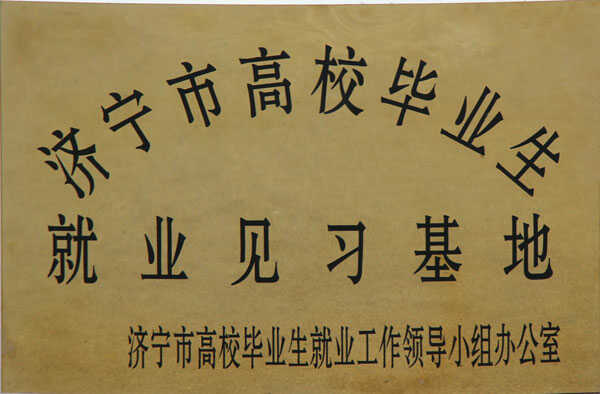 济宁市高校毕业生
就业见习基地
济宁市高校毕业生就业工作领导小组办公室